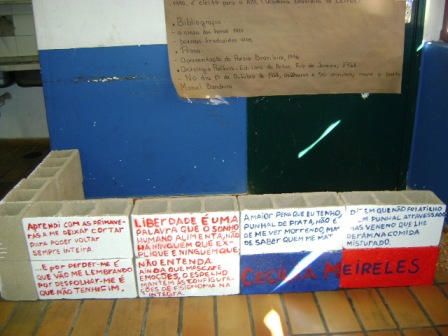 1940, é eleito para a
• Bibliografia
• Prosa
Apresentação da Poesia Brasileira, 1946
Manuel Bandeira
APRENDI COM AS PRIMAVE-
RAS A ME DEIXAR CORTAR
PARA PODER VOLTAR
SEMPRE INTEIRA.
...E POR PERDER-ME É
QUE VÃO ME LEMBRANDO
POR DESFOLHAR-ME É
QUE NÃO TENHO FIM.
LIBERDADE É UMA
PALAVRA QUE O SONHO
HUMANO ALIMENTA, NÃO
HÁ NINGUÉM QUE EX-
PLIQUE E NINGUEM QUE
NÃO ENTENDA
AINDA QUE MASCARE
EMOÇÕES, O ESPELHO
MANTEM AS CONFIGURA-
ÇÕES DE FISIONOMIA NA
INTEGRA.
A MAIOR PENA QUE EU TENHO,
PUNHAL DE PRATA, NÃO É
DE ME VER MORRENDO, MAS
DE SABER QUEM ME MATA
DIZEM QUE NÃO FOI ATILHO
NEM PUNHAL ATRAVESSADO
MAS VENENO QUE LHE
DERAM NA COMIDA
MISTURADO.
CECÍLIA MEIRELES